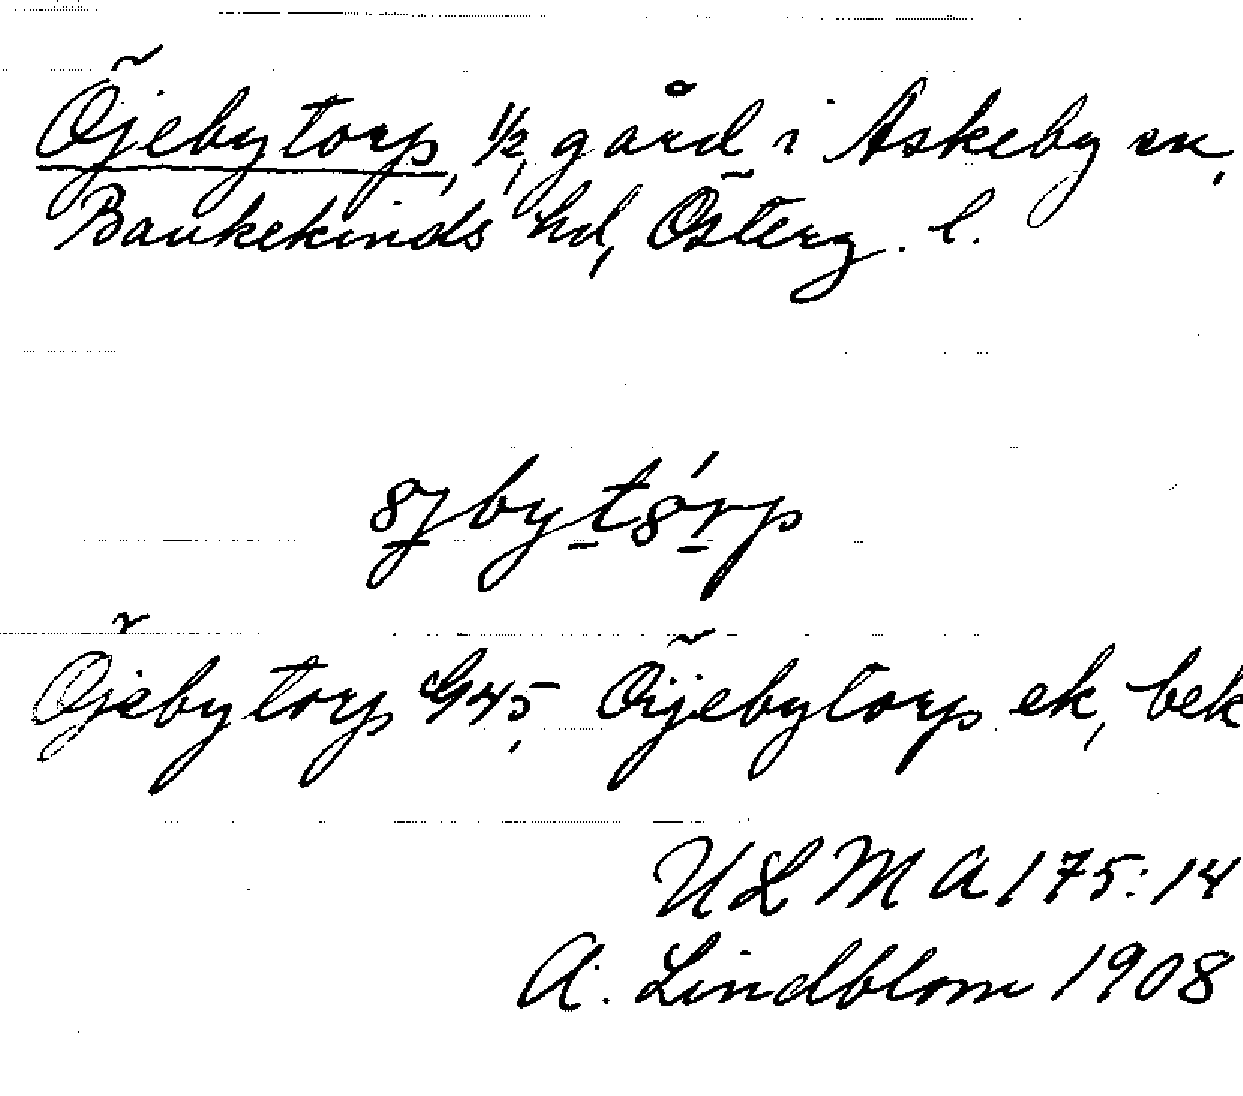 Öjebytorp, 1/2 gård i Askeby sn,
Bankekinds hd, Österg. l.
Öjebytorp G45, Öijebytorp ek, bek
ULMA 175:14
A. Lindblom 1908